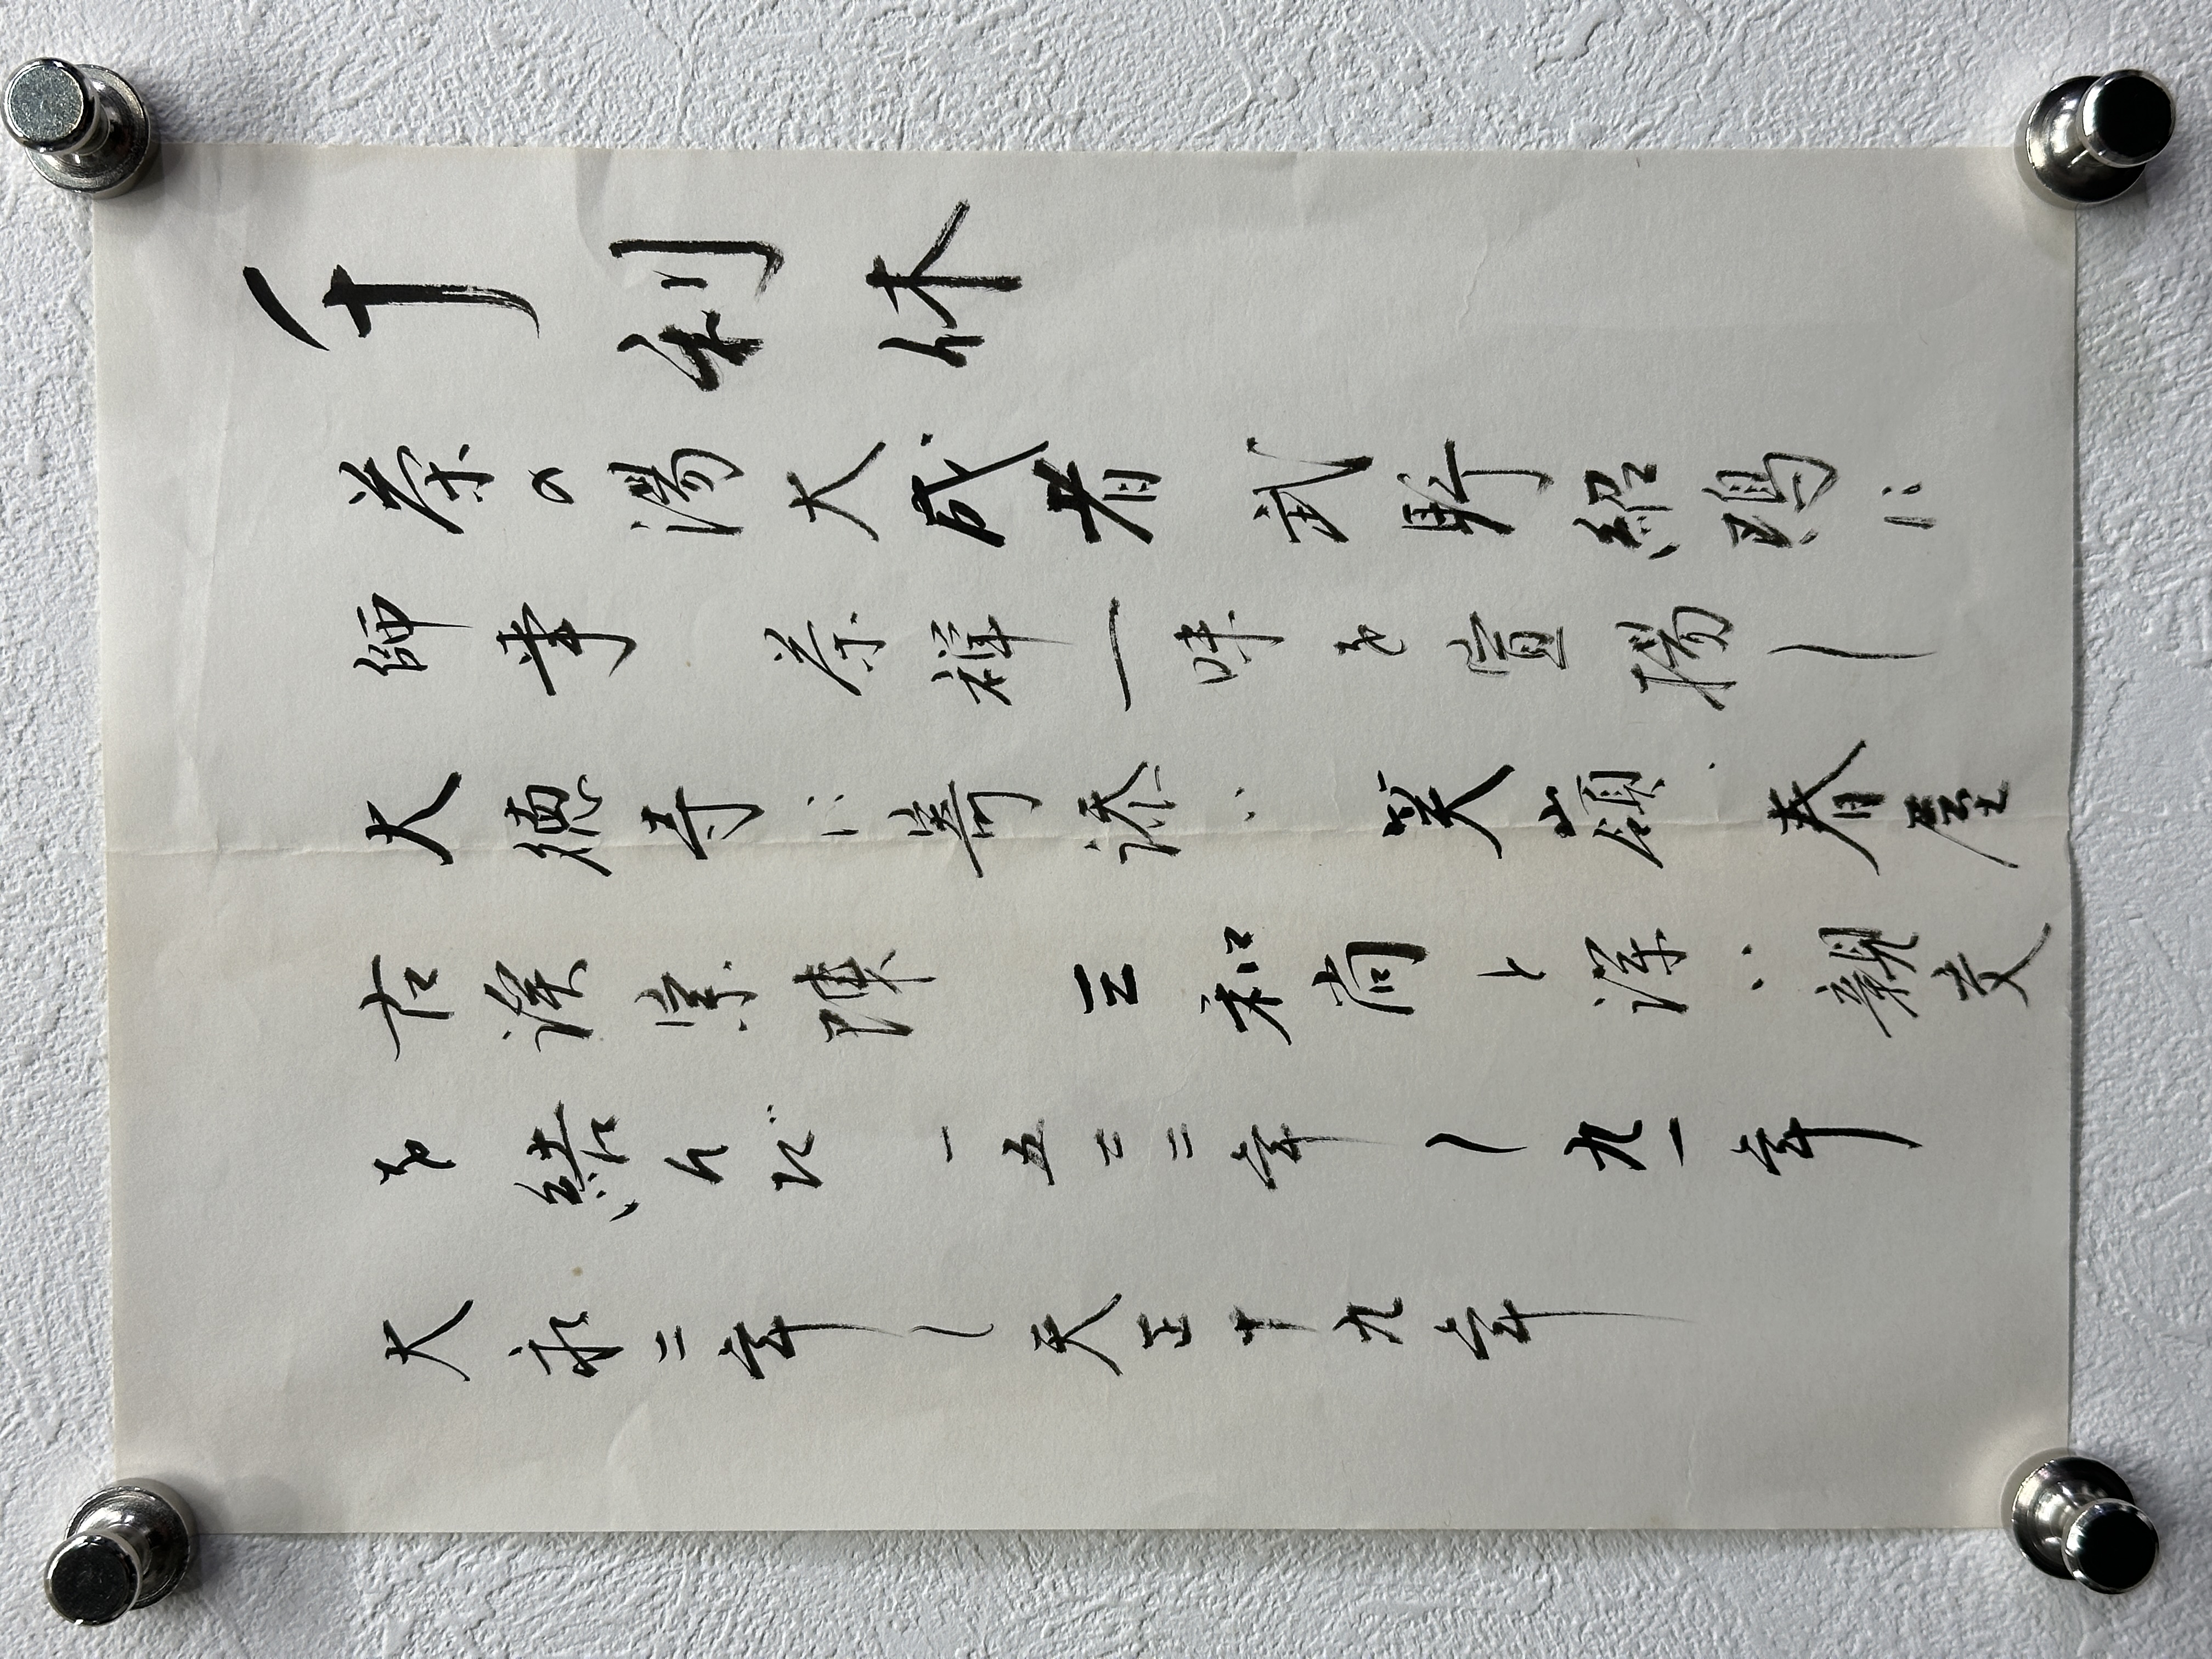 千利休
茶の湯大成者 武野紹鴎に
師事 茶禅一味を宣揚し
大徳寺に帰依 笑嶺 春屋
古渓宗陳 三和尚と深い親交
を結んだ 一五二二年〜九一年
大永二年〜天正十九年